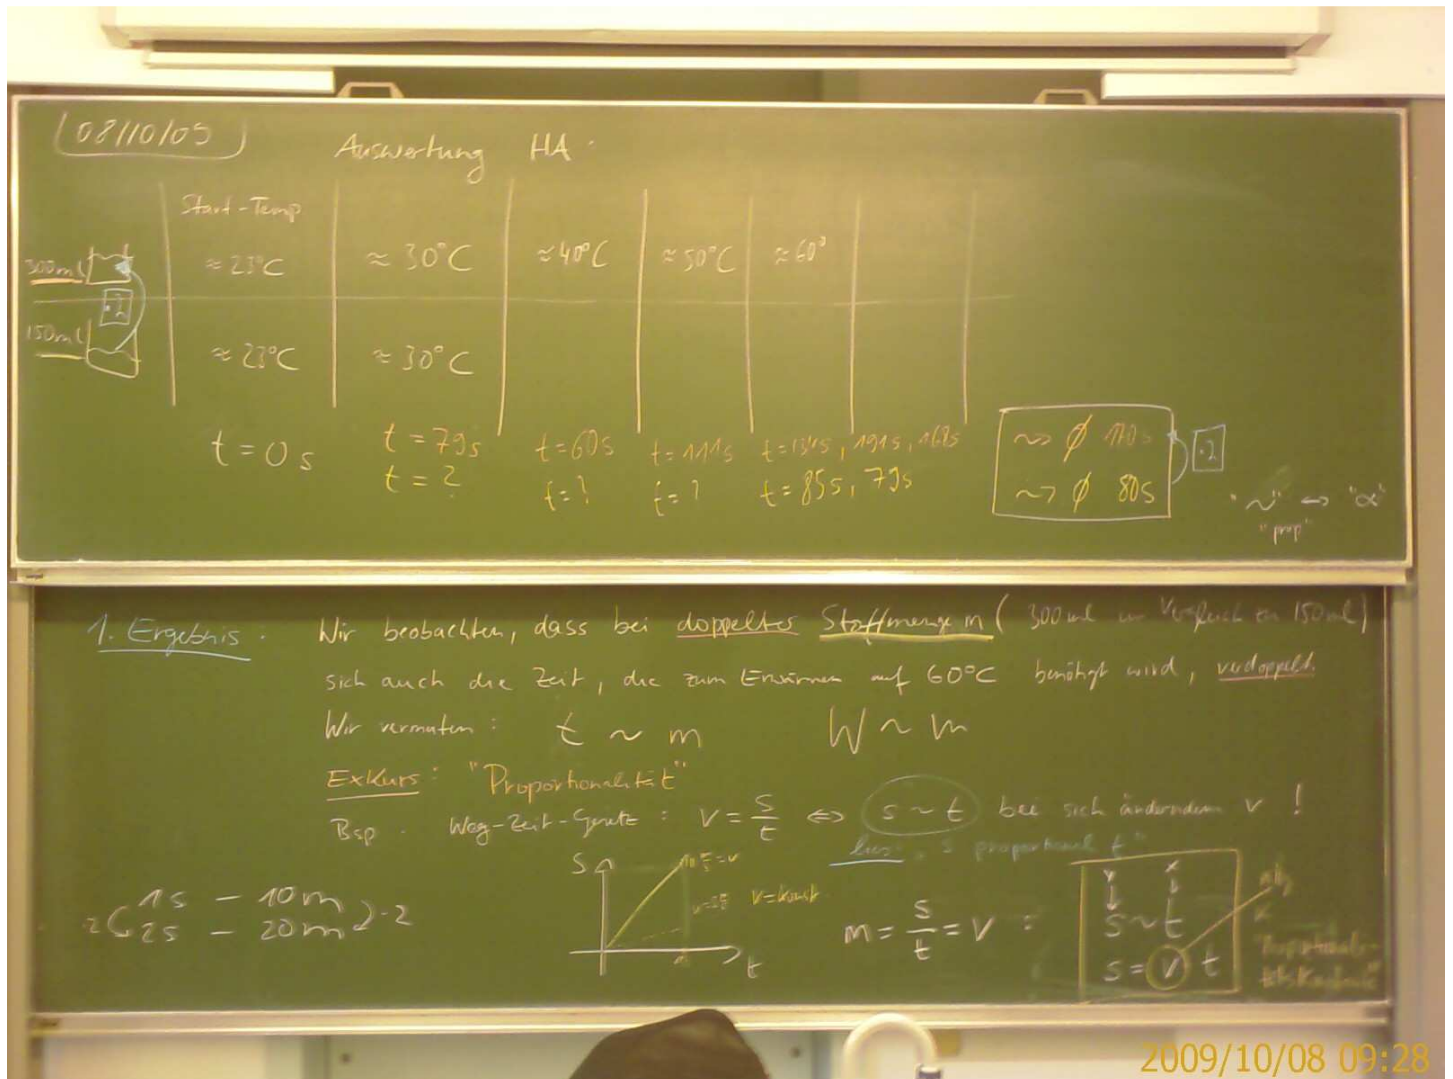 08/10/09
Auswertung HA
Start-Temp
300ml ≈ 23°C ≈ 30°C ≈ 40°C ≈ 50°C ≈ 60°
·2
150ml ≈ 23°C ≈ 30°C
t = 0s t = 79s t = 60s t = 111s t = 191s, 168s
t = ? t = ? t = ? t = 85s, 79s
~> ∅ 170s
~> ∅ 80s
·2
"~" ↔ "∝"
"prop"
1. Ergebnis: Wir beobachten, dass bei doppelter Stoffmenge m (300ml im Vergleich zu 150ml)
sich auch die Zeit, die zum Erwärmen auf 60°C benötigt wird, verdoppelt.
Wir vermuten: t ~ m W ~ m
Exkurs: "Proportionalität"
Bsp. Weg-Zeit-Gesetz: v = s/t ⇔ s ~ t bei sich änderndem v !
lies: "s proportional t"
1s – 10m
2s – 20m
·2 ·2
S
s/t = v
v = konst
t
m = s/t = v
y x
s ~ t
s = v t
"Proportionali-
tätskonstante"
2009/10/08 09:28